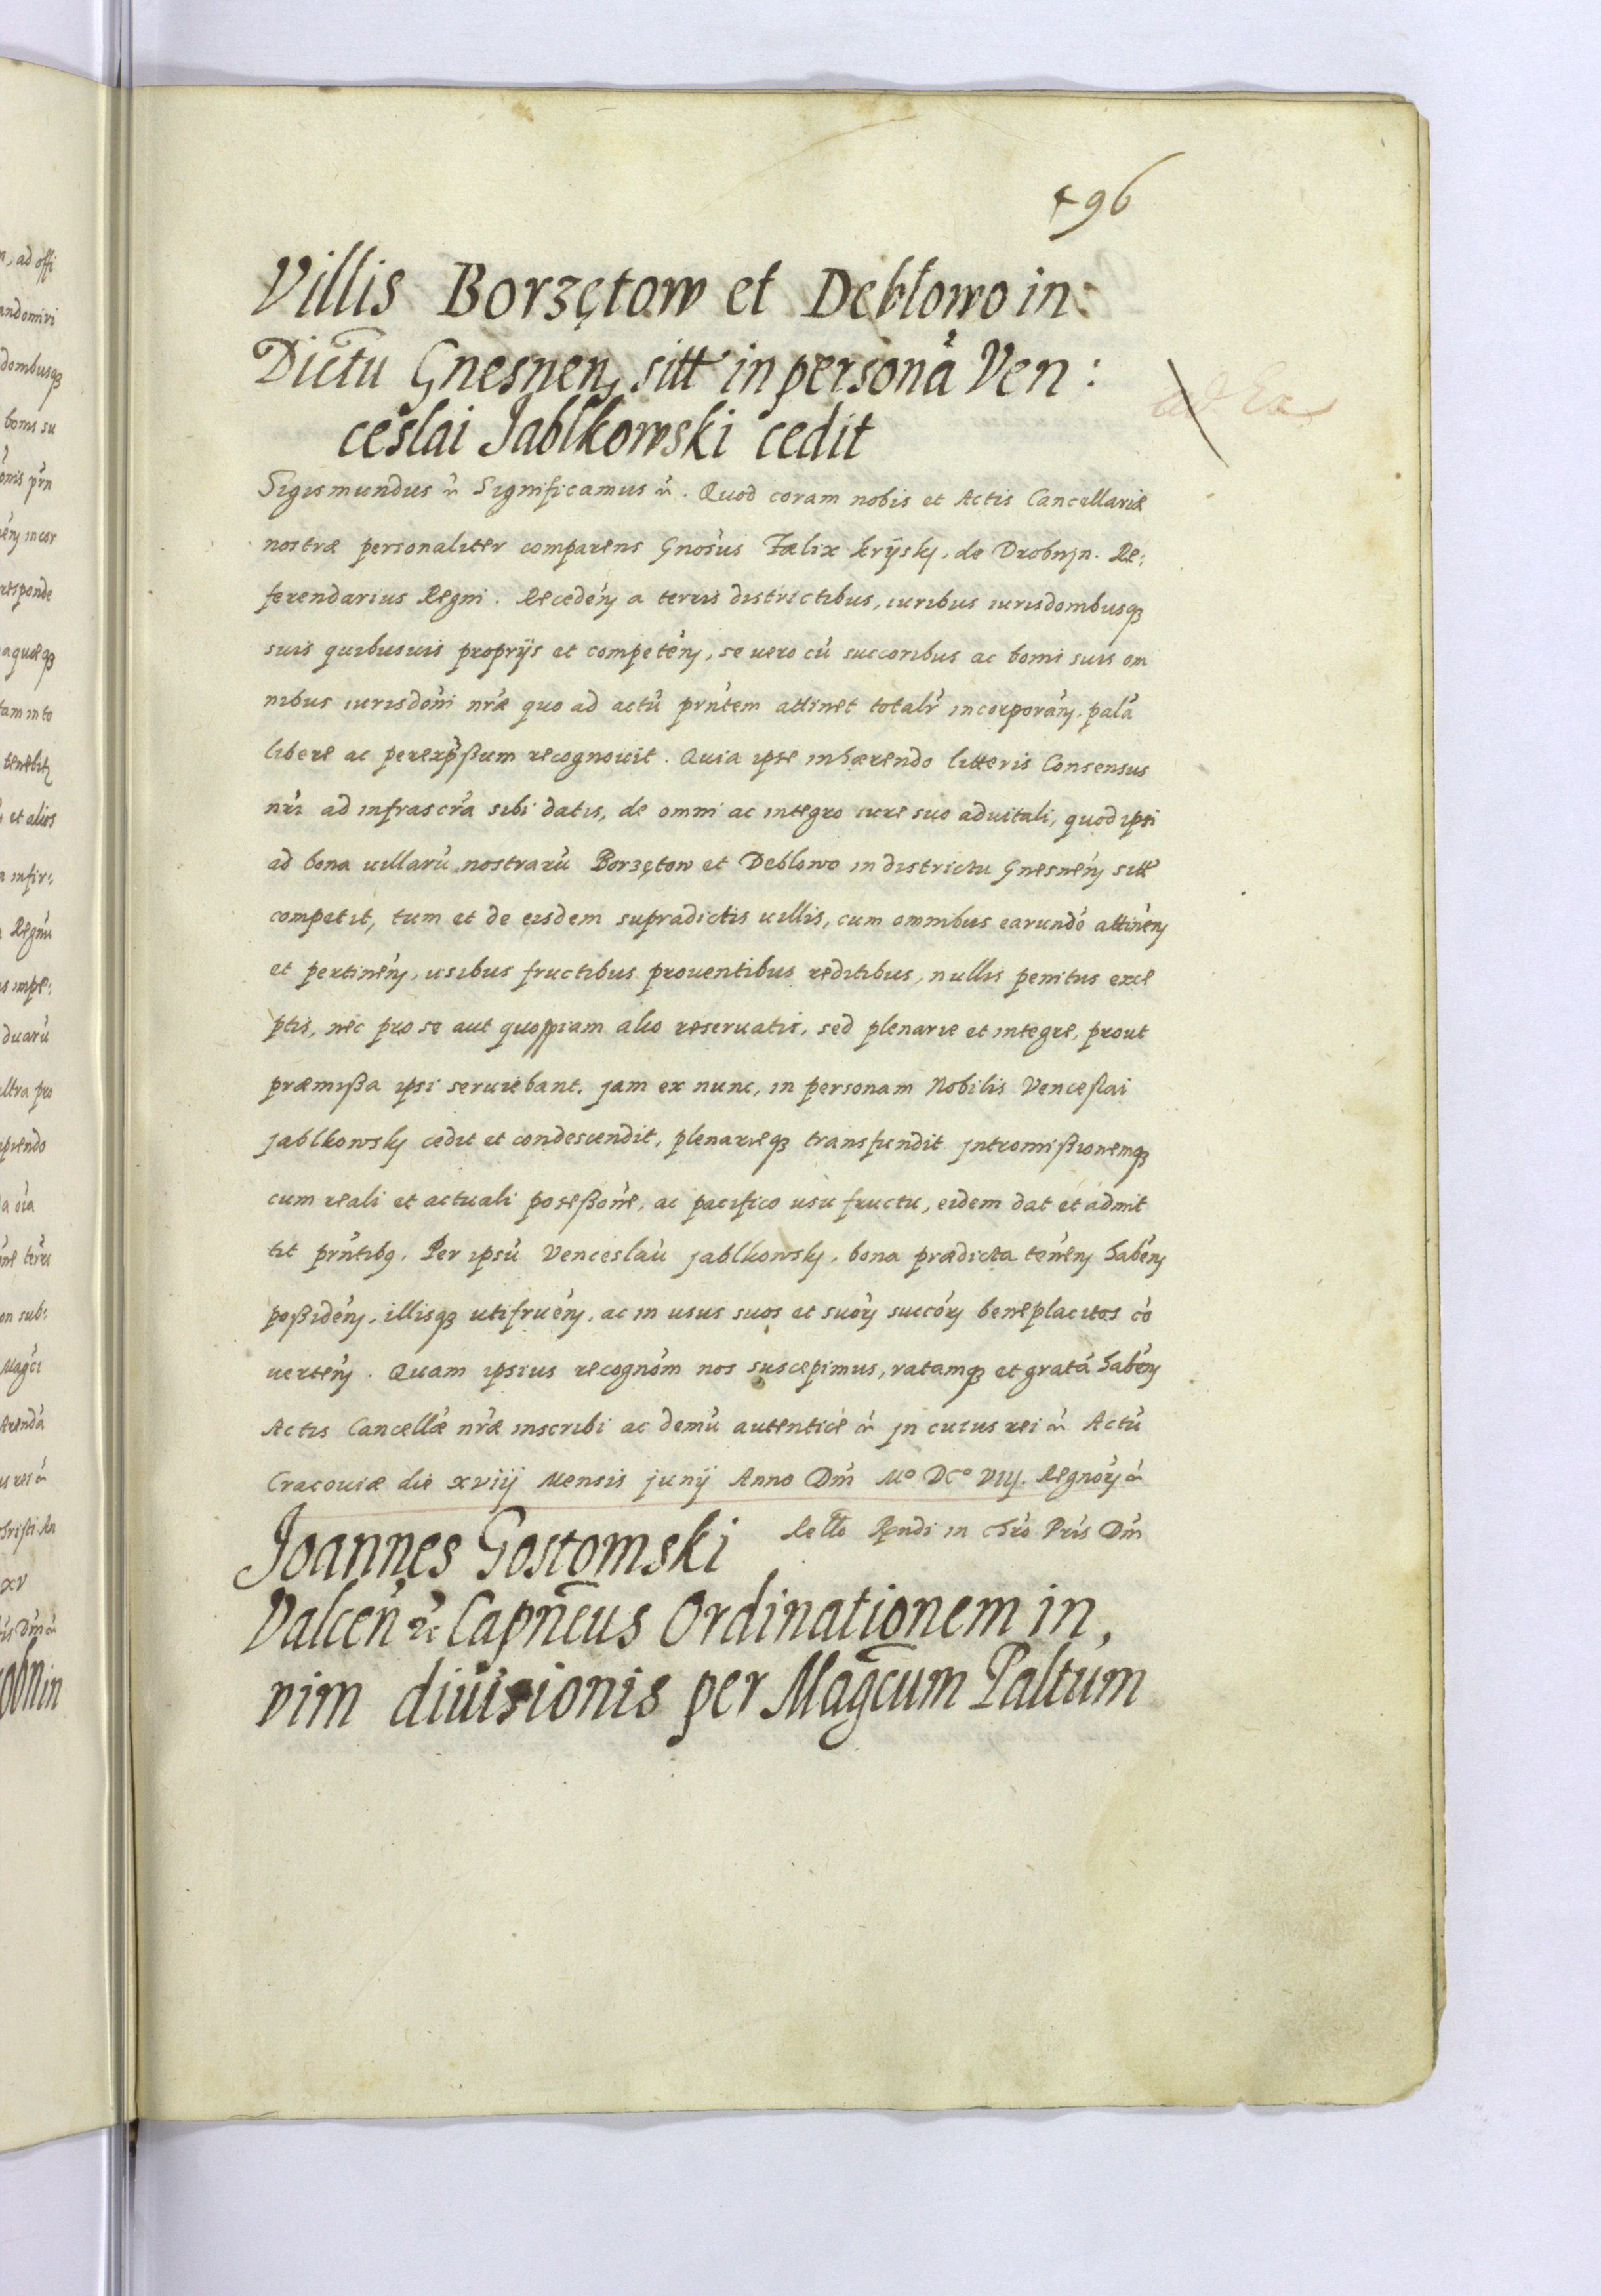 496
Villis Borzętow et Deblowo in:
Dictu Gnesnen, sitt in personá Ven:
ceslai Jablkowski cedit
Sigismundus etc Significamus etc. Quod coram nobis et Actis Cancellariæ
nostræ personaliter comparens Gnosus Fælix Kryisky, de Drobnyn. Re:
ferendarius Regni. Receden a terris districtibus, iuribus iurisdombusq3
suis quibusuis proprijs et competen, se uero cú succoribus ac bonis suis om
nibus iurisdoni nræ quo ad actú prntem attinet totalr incorporan. palá
libere ac perexpßum recognouit. Quia ipse inhærendo litteris Consensus
nri ad infrascra sibi datis, de omni ac integro iure suo aduitali, quod ipsi
ad bona uillarú nostrarú Borzętow et Deblowo in districtu Gnesnen sitt
competit, tum et de eisdem supradictis uillis, cum omnibus earundé attinen
et pertinen, usibus fructibus prouentibus reditibus, nullis penitus exce
ptis, nec pro se aut quospiam alio reseruatis, sed plenarie et integre, prout
præmißa ipsi seruiebant. jam ex nunc, in personam Nobilis Venceslai
Jablkowsky cedit et condescendit, plenarieq3 transfundit jntromißionemq3
cum reali et actuali poseßone, ac pacifico usu fructu, eidem dat et admit
tit prntibq. Per ipsú Venceslaú jablkowsky, bona prædicta tenen haben
poßiden, illisq3 utifruen, ac in usus suos et suor succor beneplacitos có
uerten. Quam ipsius recognom nos suscepimus, ratamq3 et gratá haben
Actis Cancellæ nræ inscribi ac demú autenticé etc jn cuius rei etc Actú
Cracouiæ die xviij Mensis junij Anno Dni Mo DCo VIIJ. Regnor etc
Joannes Gostomski Rello Rndi in Chro Pris Dni
Valcen etc Capneus Ordinationem in,
vim diuisionis per Magcum Paltum